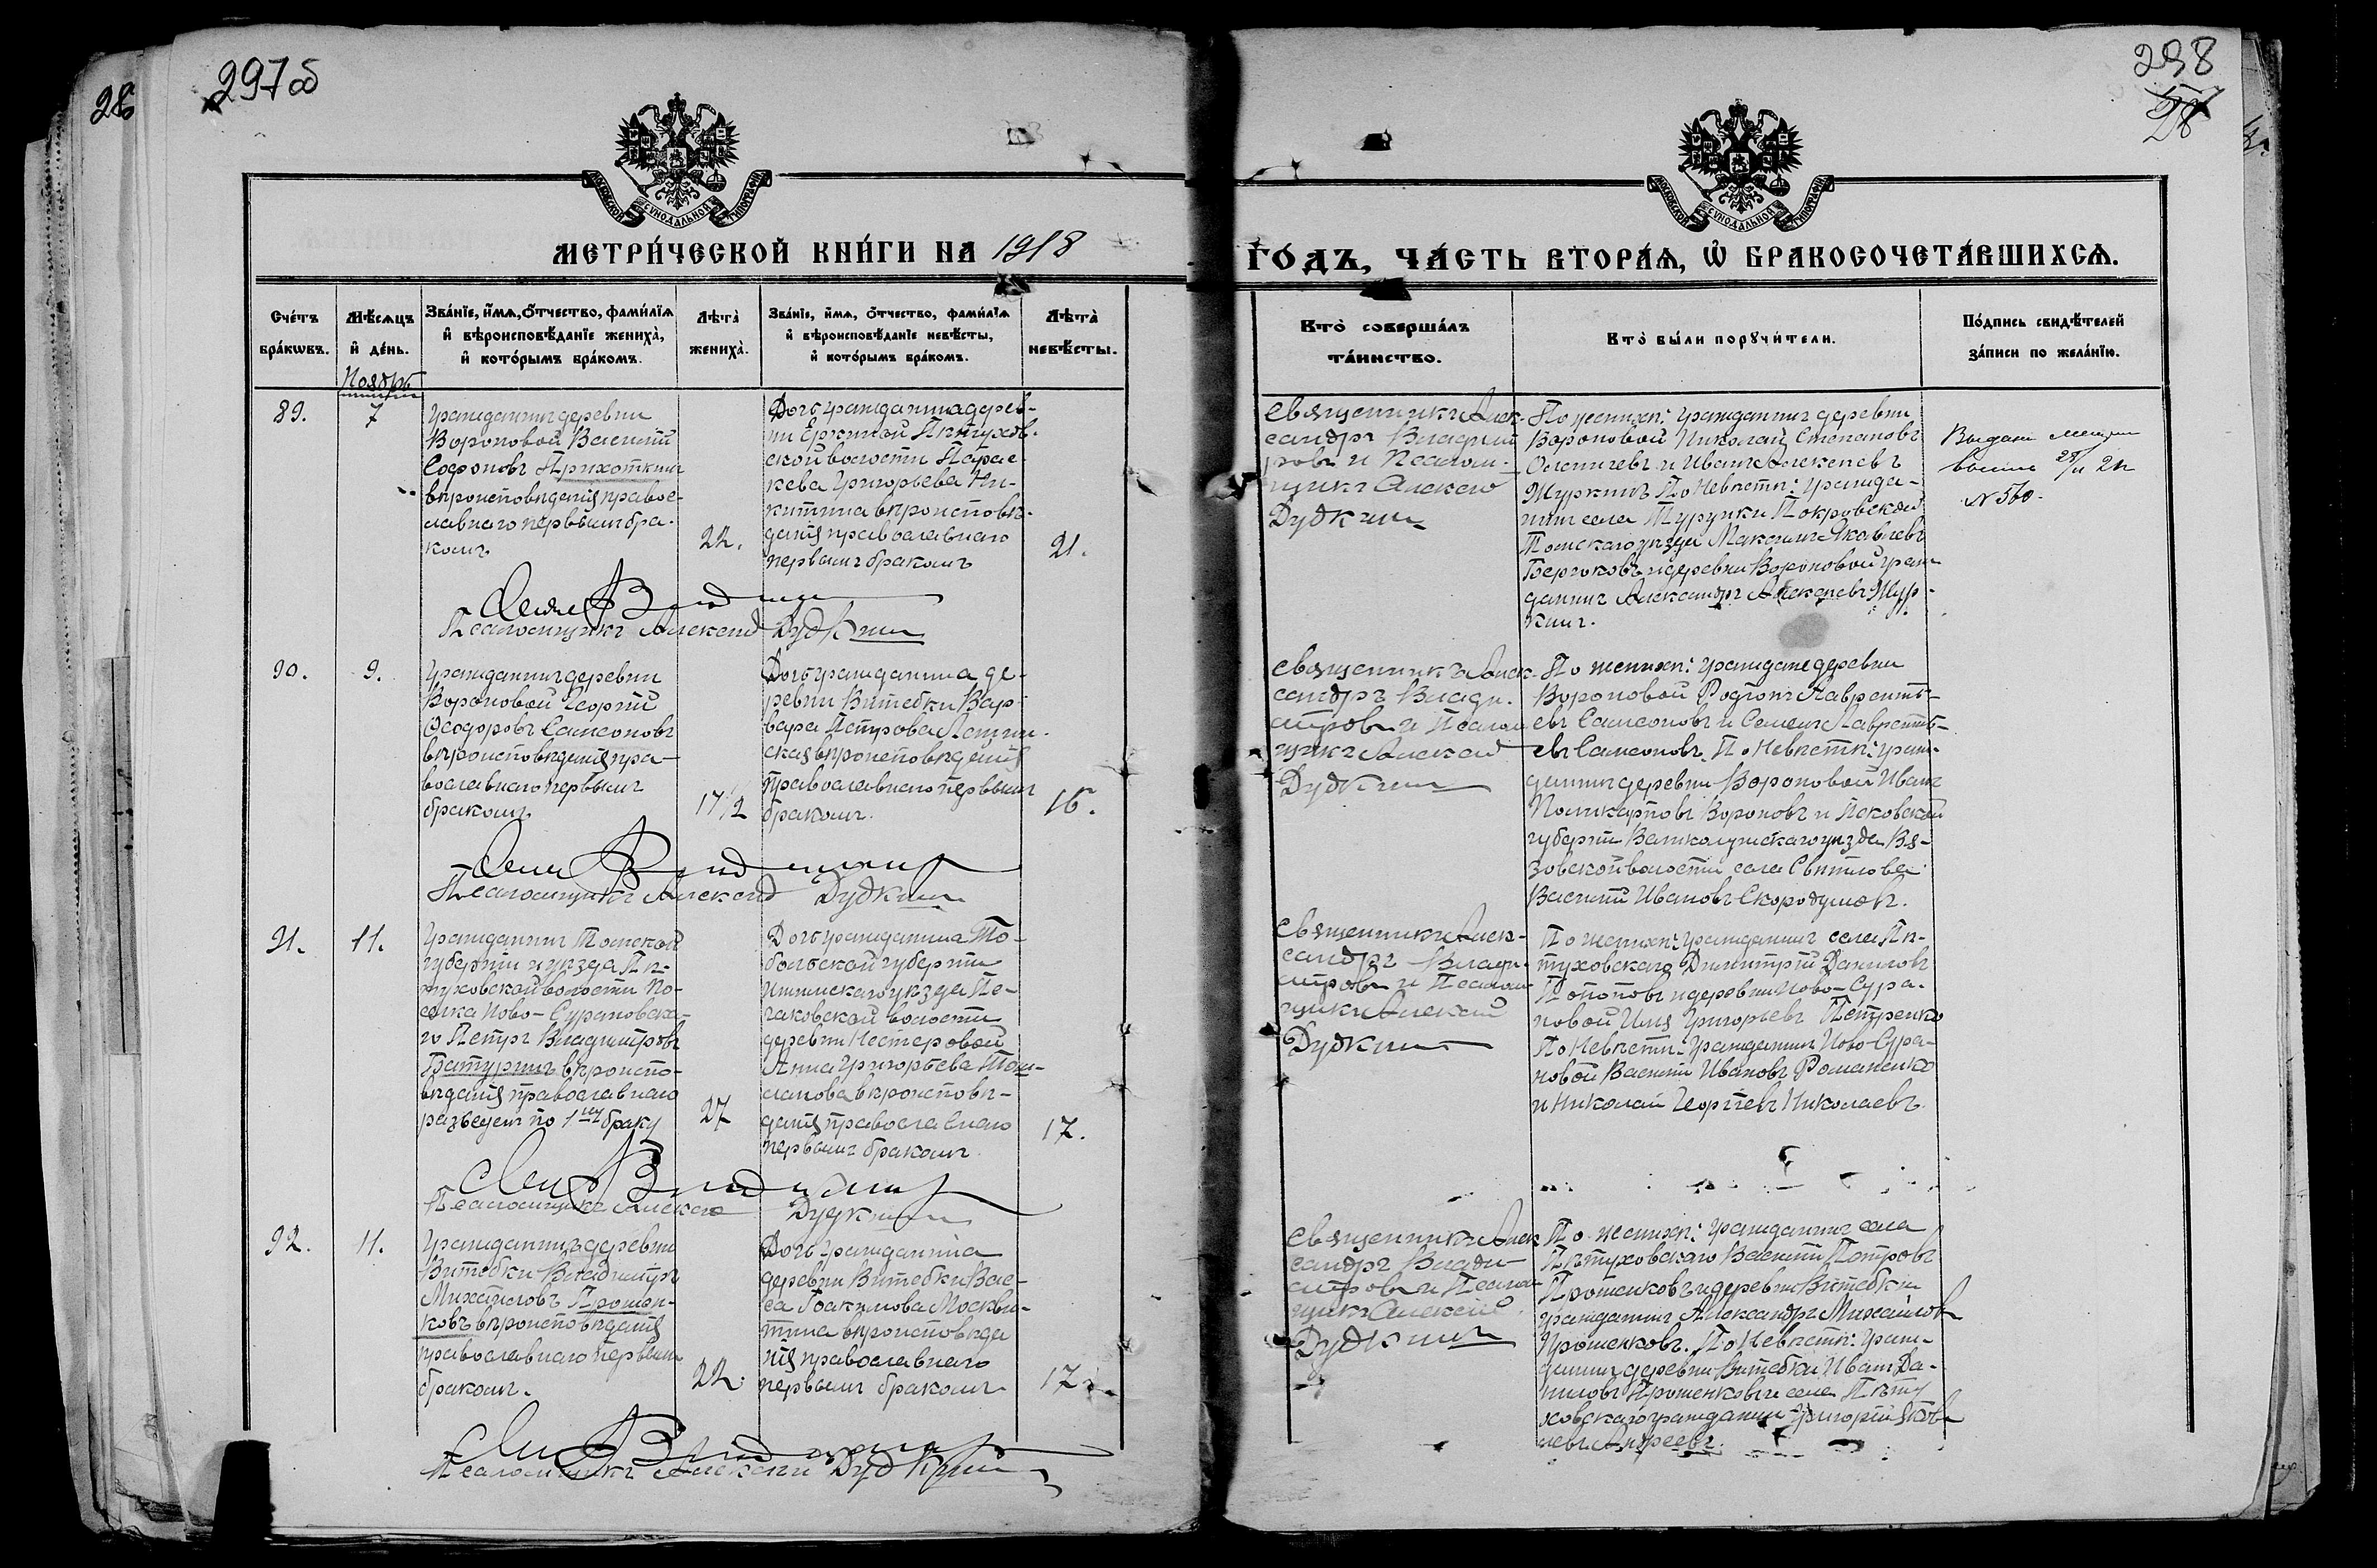 297об
298
28
МЕТРИ́ЧЕСКОЙ КНИ́ГИ НА 1918
ГО́ДЪ, ЧА́СТЬ ВТОРА́Ѧ, Ѽ БРАКОСОЧЕТА́ВШИХСѦ.
Счетъ браковъ.
Мѣсяцъ и день.
Званіе, имя, отчество, фамилія
и вѣроисповѣданіе жениха,
и которымъ бракомъ.
Лѣта жениха.
Званіе, имя, отчество, фамилія
и вѣроисповѣданіе невѣсты,
и которымъ бракомъ.
Лѣта невѣсты.
Кто совершалъ
таинство.
Кто были поручители.
Подпись свидѣтелей
записи по желанію.
Ноябрь
89.
7
Гражданинъ деревни
Вороновой Василій
Софоновъ Прихоткинъ
вѣроисповѣданія правос-
лавнаго первымъ бра-
комъ
22.
Дочь гражданина дерев-
ни Еркиной Пѣтухов-
ской волости Парас-
кева Григорьева Ни-
китина вѣроисповѣ-
данія православнаго
первымъ бракомъ
21.
Псаломщикъ Алексѣй Дудкинъ
Священникъ Алек-
сандръ Владими-
ровъ и Псалом-
щикъ Алексѣй
Дудкинъ
По женихѣ: гражданинъ деревни
Вороновой Николай Степановъ
и Иванъ Алексѣевъ
Журкинъ По Невѣстѣ: гражда-
нинъ села Турунки Покровской
Томскаго уѣзда Максимъ Яковлевъ
и деревни Вороновой граж-
данинъ Александръ Алексѣевъ Жур-
кинъ.
№ 560.
90.
9.
Гражданинъ деревни
Вороновой Георгій
Ѳеодоровъ Самсоновъ
вѣроисповѣданія пра-
вославнаго первымъ
бракомъ
17 1/2
Дочь гражданина де-
ревни Витебки Вар-
вара Петрова
вѣроисповѣданія
православнаго первымъ
бракомъ.
16.
Псаломщикъ Алексѣй Дудкинъ
Священникъ Алек-
сандръ Влади-
міровъ и Псалом-
щикъ Алексѣй
Дудкинъ
По женихѣ: граждане деревни
Вороновой Родіонъ Лаврентье-
евъ Самсоновъ и Семенъ Лавренть-
евъ Самсоновъ. По Невѣстѣ: граж-
данинъ деревни Вороновой Иванъ
Поликарповъ Вороновъ и Псковской
губерніи Великолуцкаго уѣзда Вя-
зовской волости села
Василій Ивановъ Скородумовъ.
91.
11.
Гражданинъ Томской
губерніи и уѣзда Пѣ-
туховской волости По-
селка Ново-Сурановска-
го Петръ Владиміровъ
Батуринъ вѣроиспо-
вѣданія православнаго
разведенъ по 1му браку
27
Дочь гражданина То-
больской губерніи
Ишимскаго уѣзда Пе-
гановской волости
деревни Нестеровой
Анна Григорьева Тол-
вѣроисповѣ-
данія православнаго
первымъ бракомъ.
17.
Псаломщикъ Алексѣй Дудкинъ
Священникъ Алек-
сандръ Влади-
міровъ и Псалом-
щикъ Алексѣй
Дудкинъ
По женихѣ: гражданинъ села Пѣ-
туховскаго Димитрій Даниловъ
и деревни Ново-Сура-
новой Илія Григорьевъ Петренко
По Невѣстѣ: гражданинъ Ново-Сура-
новой Василій Ивановъ Романенко
и Николай Георгіевъ Николаевъ
92.
11.
Гражданинъ деревни
Витебки Владиміръ
Михайловъ Прошен-
ковъ вѣроисповѣданія
православнаго первымъ
бракомъ.
22.
Дочь гражданина
деревни Витебки Вас-
са Іоакимова Москви-
тина вѣроисповѣда
нія православнаго
первымъ бракомъ
17
Псаломщикъ Алексѣй Дудкинъ
Священникъ Алек
сандръ Влади-
міровъ и Псалом
щикъ Алексѣй
Дудкинъ
По женихѣ: гражданинъ села
Пѣтуховскаго Василій Петровъ
Прошенковъ и деревни Витебки
гражданинъ Александръ Михайловъ
Прошенковъ. По Невѣстѣ: граж-
данинъ деревни Витебки Иванъ Да-
ниловъ Прошенковъ и села Пѣту
ховскаго гражданинъ Григорій Яков
левъ Андреевъ.